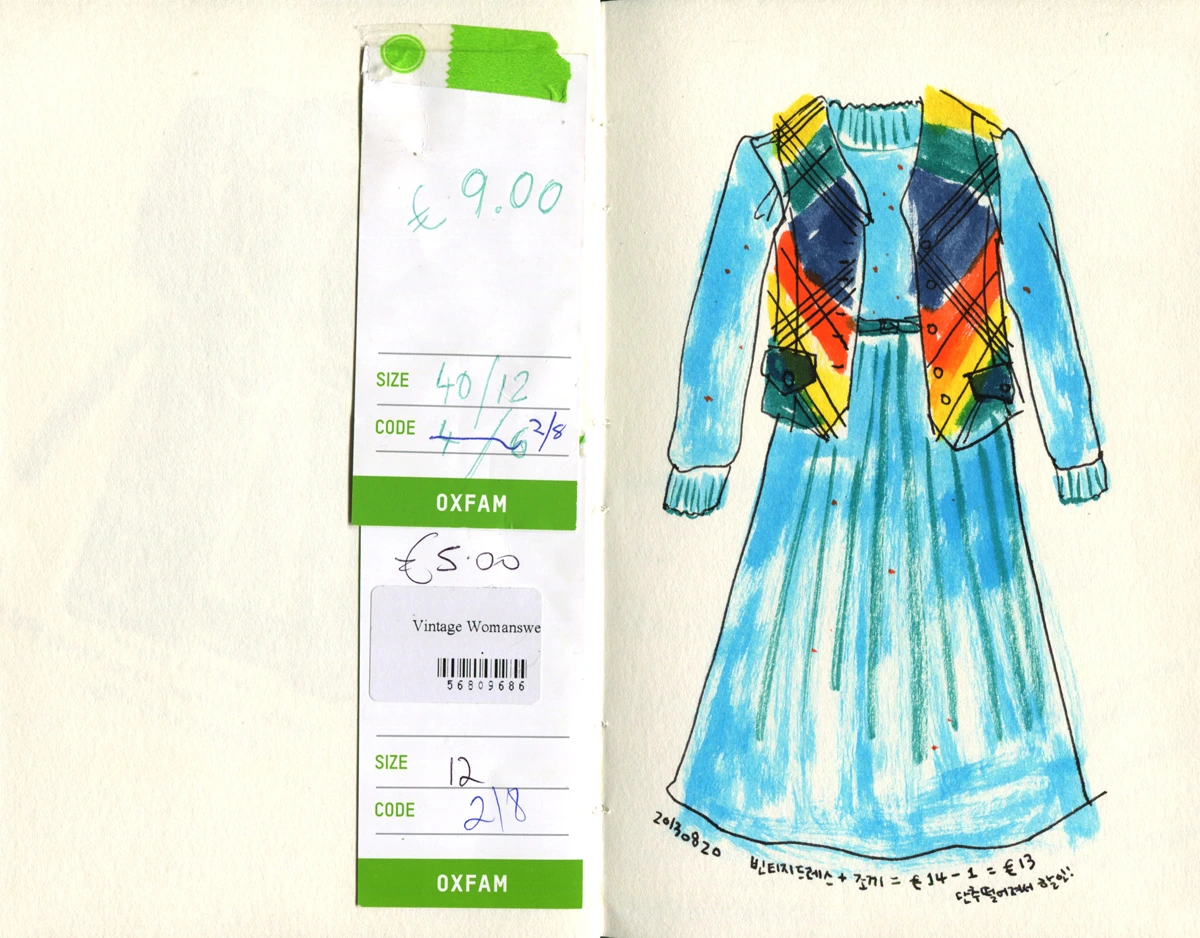 £9.00
SIZE 40/12
CODE 4/6 2/8
OXFAM
£5.00
Vintage Womanswe
56809686
SIZE 12
CODE 2/8
OXFAM
20130820
빈티지드레스 + 조끼 = £14 - 1 = £13
단추떨어져서 할인!